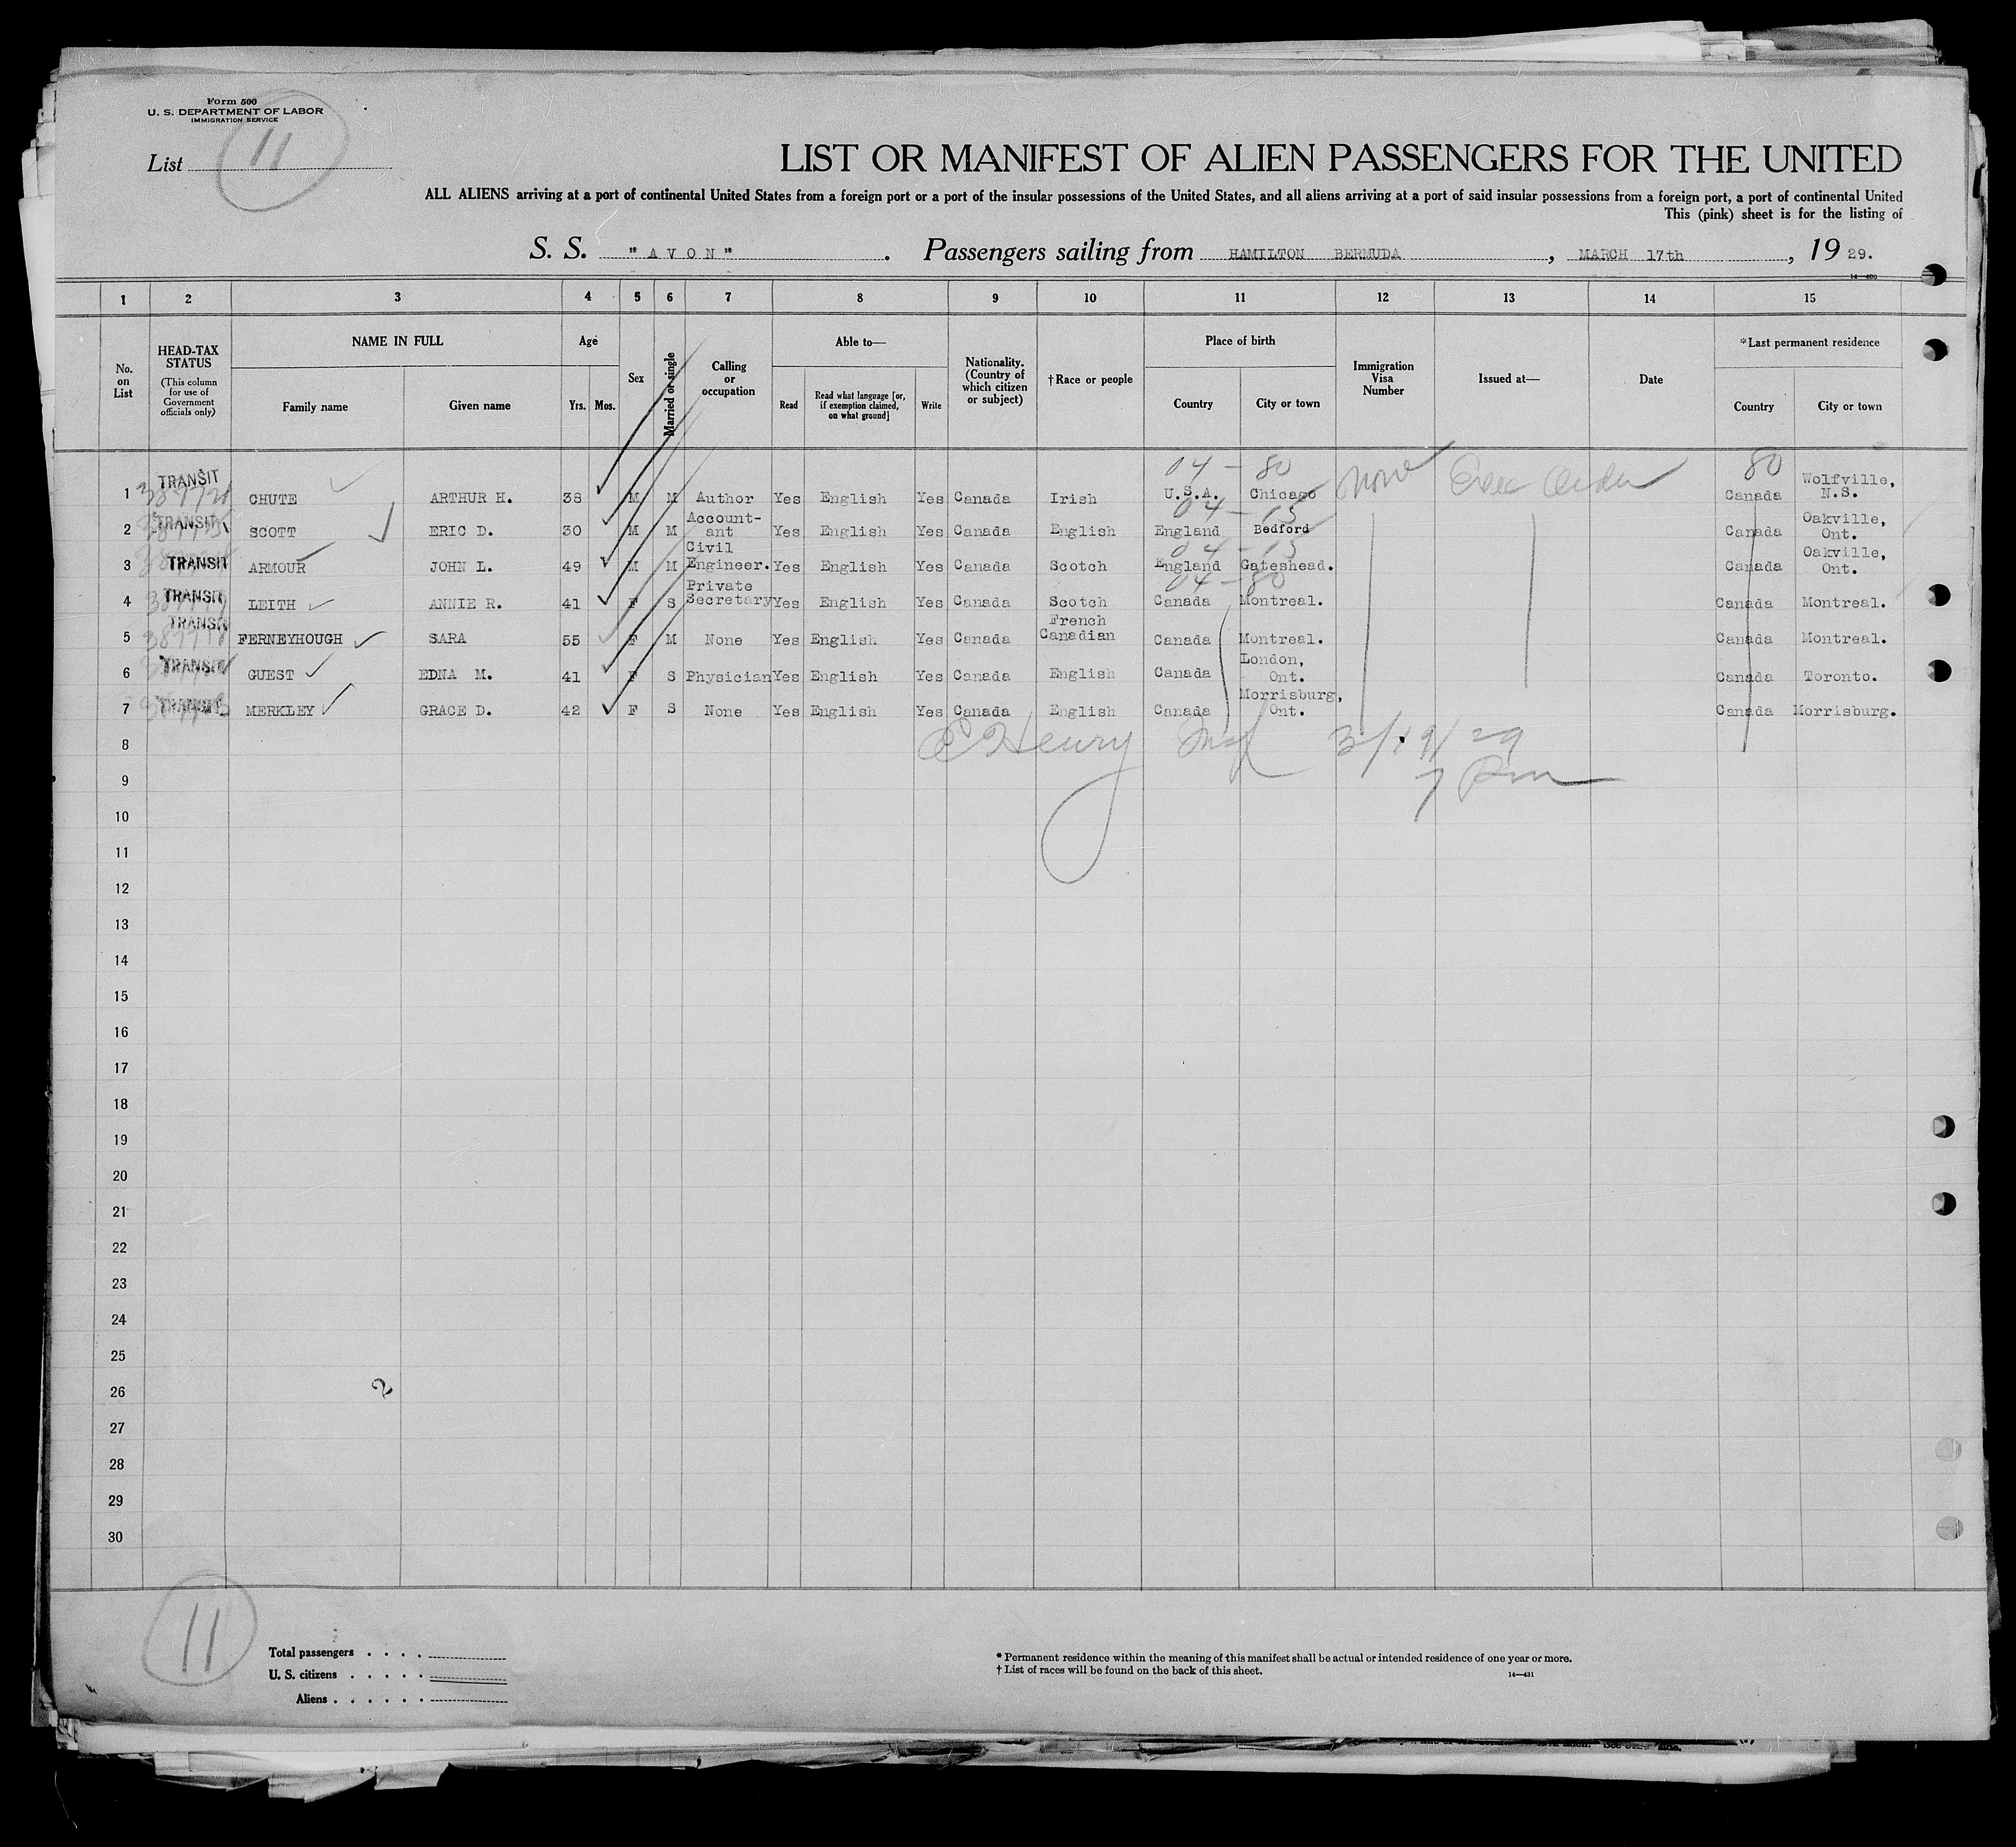 Form 500
U. S. DEPARTMENT OF LABOR
IMMIGRATION SERVICE
List 11
LIST OR MANIFEST OF ALIEN PASSENGERS FOR THE UNITED
ALL ALIENS arriving at a port of continental United States from a foreign port or a port of the insular possessions of the United States, and all aliens arriving at a port of said insular possessions from a foreign port, a port of continental United
This (pink) sheet is for the listing of
S. S. "AVON". Passengers sailing from HAMILTON BERMUDA, MARCH 17th, 19 29.
14—430
1 2 3 4 5 6 7 8 9 10 11 12 13 14 15
No. on List
HEAD-TAX STATUS (This column for use of Government officials only)
NAME IN FULL
Family name Given name
Age
Yrs. Mos.
Sex
Married or single
Calling or occupation
Able to—
Read
Read what language [or, if exemption claimed, on what ground]
Write
Nationality. (Country of which citizen or subject)
†Race or people
Place of birth
Country City or town
Immigration Visa Number
Issued at—
Date
*Last permanent residence
Country City or town
04 - 80 80
1 TRANSIT CHUTE ARTHUR H. 38 M M Author Yes English Yes Canada Irish U.S.A. Chicago None Exec Order Canada Wolfville, N.S.
04 - 15
2 TRANSIT SCOTT ERIC D. 30 M M Account-ant Yes English Yes Canada English England Bedford Canada Oakville, Ont.
04 - 15
3 TRANSIT ARMOUR JOHN L. 49 M M Civil Engineer. Yes English Yes Canada Scotch England Gateshead. Canada Oakville, Ont.
04 - 80
4 TRANSIT LEITH ANNIE R. 41 F S Private Secretary Yes English Yes Canada Scotch Canada Montreal. Canada Montreal.
5 TRANSIT FERNEYHOUGH SARA 55 F M None Yes English Yes Canada French Canadian Canada Montreal. Canada Montreal.
6 TRANSIT GUEST EDNA M. 41 F S Physician Yes English Yes Canada English Canada London, Ont. Canada Toronto.
7 TRANSIT MERKLEY GRACE D. 42 F S None Yes English Yes Canada English Canada Morrisburg, Ont. Canada Morrisburg.
8 Henry 3/19/29
9 7 Pm
10
11
12
13
14
15
16
17
18
19
20
21
22
23
24
25
26 2
27
28
29
30
11
Total passengers
U. S. citizens
Aliens
* Permanent residence within the meaning of this manifest shall be actual or intended residence of one year or more.
† List of races will be found on the back of this sheet.
14—431